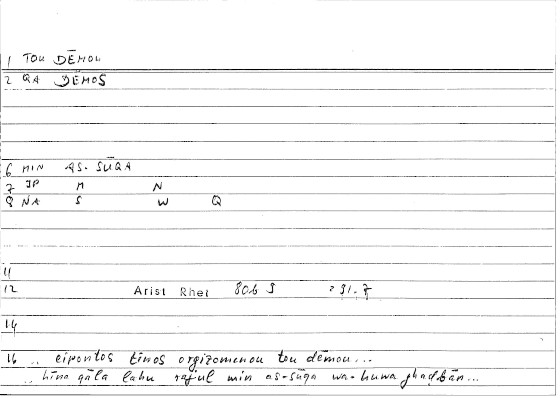 1 TOU DĒMOU
2 QA DĒMOS
6 MIN AS-SŪQA
7 JP M N
8 NA S W Q
11
12 Arist Rhet 806 231.7
14
16 .. eipontos tinos orgizomenou tou dēmou...
.. hīna qāla lahu rajul min as-sūqa wa-huwa ghaḍbān...